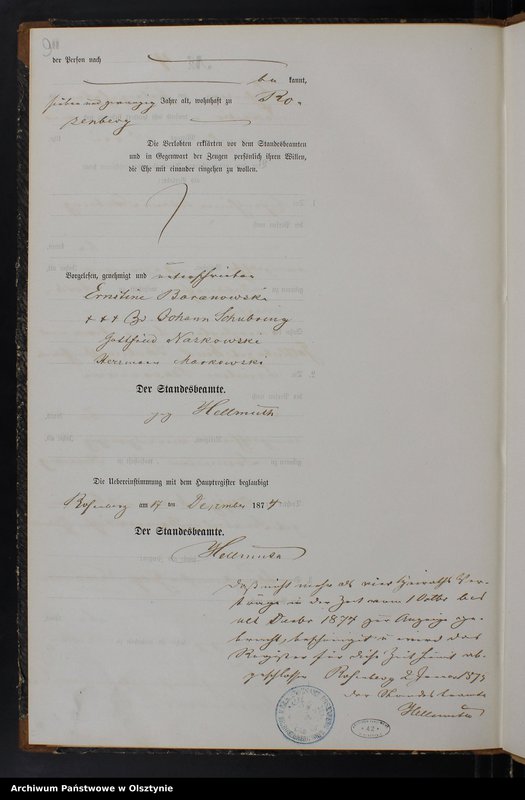 der Person nach
be kannt,
sieben und zwanzig Jahre alt, wohnhaft zu Ro-
senberg
Die Verlobten erklärten vor dem Standesbeamten
und in Gegenwart der Zeugen persönlich ihren Willen,
die Ehe mit einander eingehen zu wollen.
Vorgelesen, genehmigt und unterschrieben
Ernstine Baranowski
+++ Johann Schubring
Gottfried Naskowski
Hermann Markowski
Der Standesbeamte.
gez Hellmuth
Die Uebereinstimmung mit dem Hauptregister beglaubigt
Rosenberg am 14 ten Dezember 1874
Der Standesbeamte.
Hellmuth
Daß nicht mehr als vier Heiraths Ver-
träge in der Zeit vom 1 Octbr bis
ult Decbr 1874 zur Anzeige ge-
bracht, bescheinigt u wird das
Register für diese Zeit hiermit ab-
geschlossen Rosenberg 2 Januar 1875
der Standesbeamte
Hellmuth
42
Archiwum Państwowe w Olsztynie